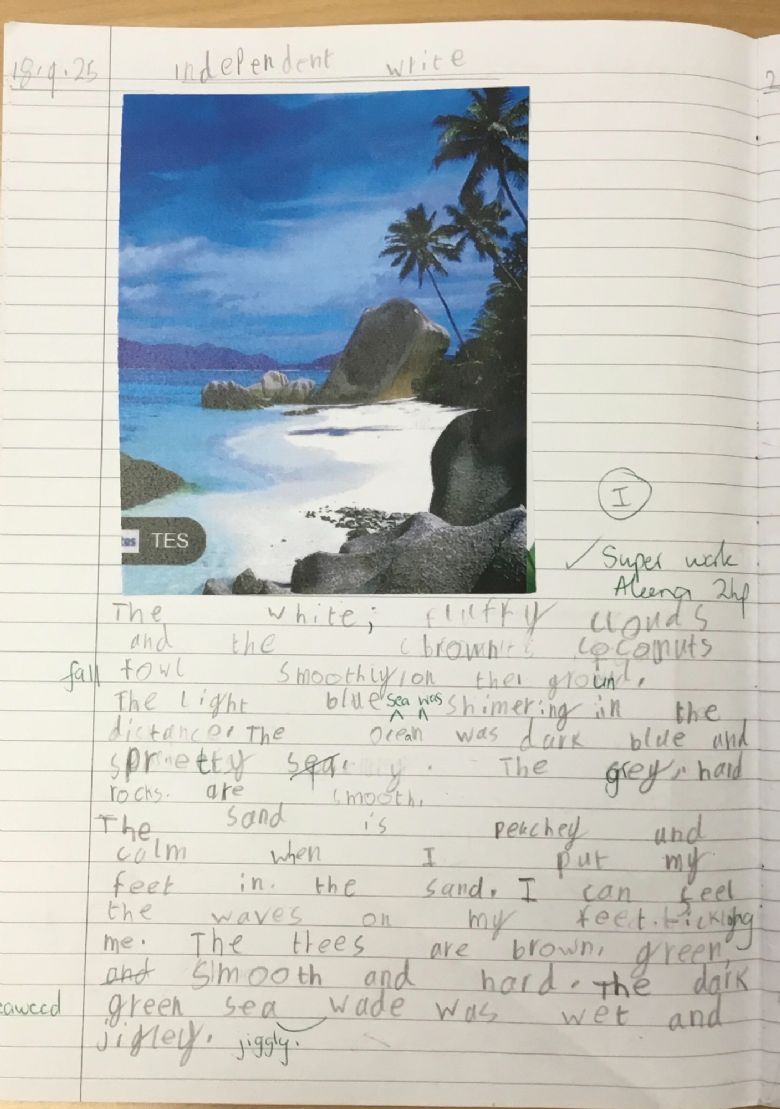 18.9.25 independent write
TES
I
✓ Super work
Aleena 2hp
The white, fluffy clouds
and the brown coconuts
fall fowl smoothly on the ground.
The light blue sea was shimering in the
distance. The ocean was dark blue and
pretty sea. The grey, hard
rocks are smooth.
The sand is peachey and
calm when I put my
feet in the sand. I can feel
the waves on my feet tickling
me. The trees are brown, green,
and smooth and hard. The dark
green sea wade was wet and
eaweed
jigley. jiggly.